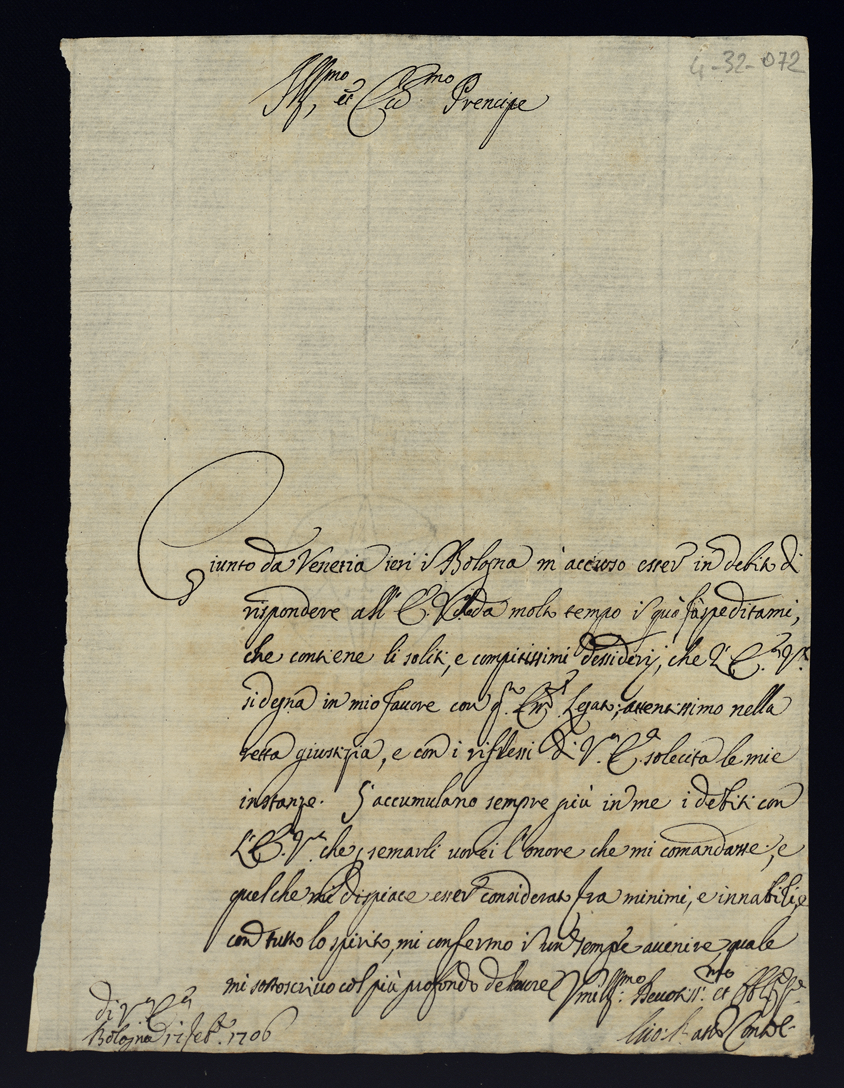 4-32-072
Ill.mo et Ecc.mo Prencipe
Giunto da Venetia ieri i Bologna m'accuso esser in debito di
rispondere all' E. V. da molto tempo
che contiene li soliti, e compitissimi dessiderij, che l'E.a V.a
si degna in mio favore con Legato, attentissimo nella
retta giustizia, e con i riflessi di V.a E.a solecita le mie
instanze. S'accumulano sempre più in me i debiti con
l'E.a V.a che vorei l'onore che mi comandasse, e
quel che mi dispiace esser considerato fra minimi, e innabili, e
con tutto lo spirito, mi confermo un sempre avenire, quale
mi sottoscrivo col più profondo
di V.a E.a
Bologna Feb.o 1706
Devotiss.